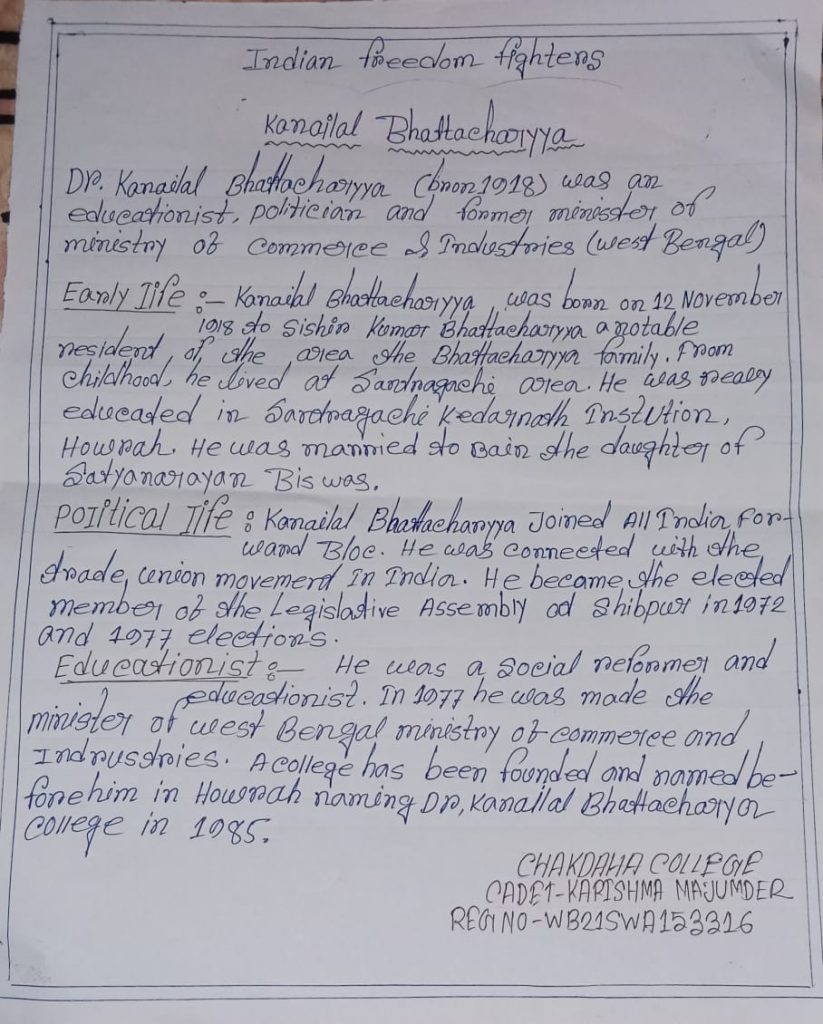 Indian freedom fighters
Kanailal Bhattachariyya
Dr. Kanailal Bhattachariyya (bron 1918) was an
educationist, politician and former minisster of
ministry of Commerce & Industries (west Bengal)
Early life :- Kanailal Bhattachariyya, was born on 12 November
1918 to Sishir Kumar Bhattachariyya a notable
resident, of the area the Bhattacharyya family. From
childhood, he lived at Santragachi area. He was
educated in Santragachi Kedarnath Instution,
Howrah. He was married to the daughter of
Satyanarayan Biswas.
Political life : Kanailal Bhattacharyya Joined All India For-
ward Bloc. He was connected with the
trade, union movement In India. He became the elected
member of the Legislative Assembly at Shibpur in 1972
and 1977 elections.
Educationist :- He was a social reformer and
educationist. In 1977 he was made the
minister of west Bengal ministry of commerce and
Indrustries. A college has been founded and named be-
fore him in Howrah naming Dr, Kanailal Bhattacharyya
College in 1985.
CHAKDAHA COLLEGE
CADET-KARISHMA MAJUMDER
REGI NO-WB21SWA153316